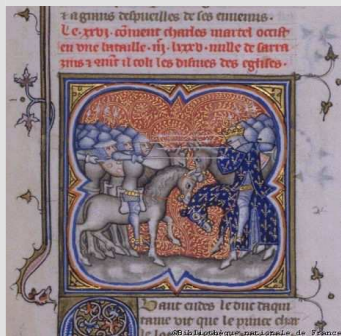 & a grans despueilles de ses ennemis.
Le .xxvi. coment charles martel occist
en une bataille .iii. lxxxv. mille de sarra
zins & coment il toli les dismes des eglises.
Quant eudes le duc daqui
taine vit que le prince char
©Bibliothèque nationale de France